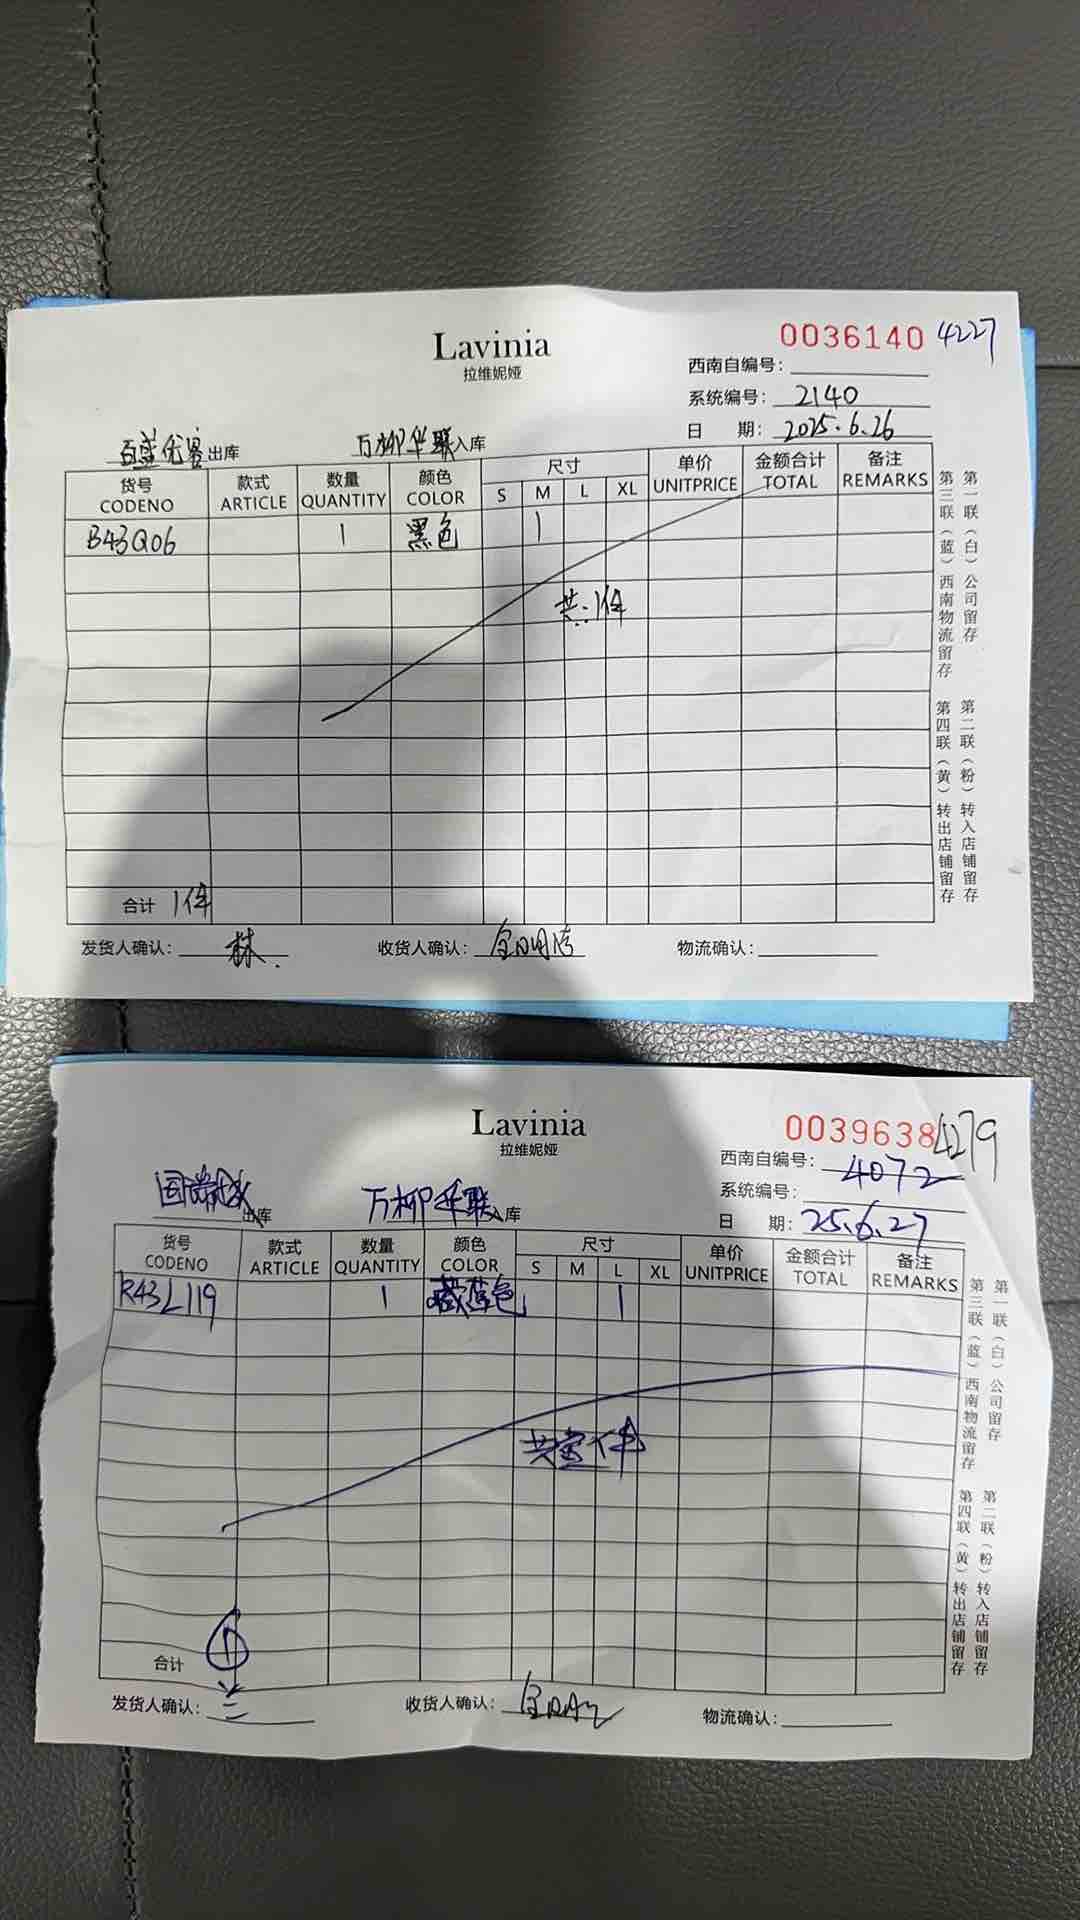 Lavinia
拉维妮娅
0036140 4227
西南自编号：
系统编号：2140
日 期：2025.6.26
百盛优客出库 万柳华联入库
货号 款式 数量 颜色 尺寸 单价 金额合计 备注
CODENO ARTICLE QUANTITY COLOR S M L XL UNITPRICE TOTAL REMARKS
B43Q06 1 黑色 1
共：1件
合计 1件
发货人确认：林 收货人确认： 物流确认：
第一联（白）公司留存 第二联（粉）转入店铺留存
第三联（蓝）西南物流留存 第四联（黄）转出店铺留存
Lavinia
拉维妮娅
0039638 4279
西南自编号：4072
系统编号：
日 期：25.6.27
国瑞城出库 万柳华联入库
货号 款式 数量 颜色 尺寸 单价 金额合计 备注
CODENO ARTICLE QUANTITY COLOR S M L XL UNITPRICE TOTAL REMARKS
R43L119 1 藏蓝色 1
共壹件
合计 1
发货人确认： 收货人确认： 物流确认：
第一联（白）公司留存 第二联（粉）转入店铺留存
第三联（蓝）西南物流留存 第四联（黄）转出店铺留存